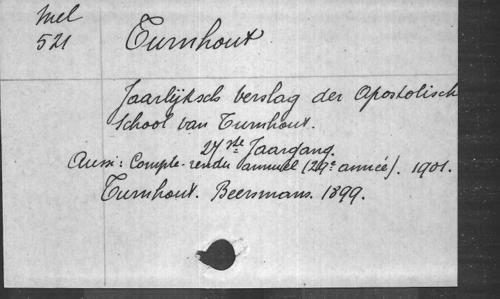 Mel
521
Turnhout
Jaarlijksch verslag der Apostolisch
School van Turnhout.
27ste Jaargang.
Aussi: Compte-rendu annuel (29e année). 1901.
Turnhout. Beersmans. 1899.